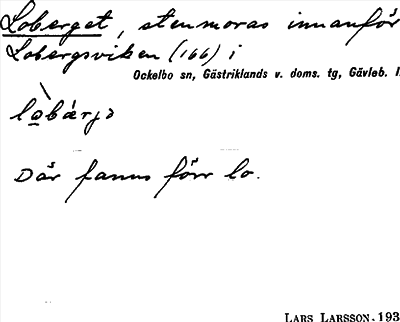 Loberget, stenmoras innanför
Lobergsviken (166) i
Ockelbo sn, Gästriklands v. doms. tg, Gävleb. l
lo̲bárjə
Där fanns förr lo.
LARS LARSSON. 193